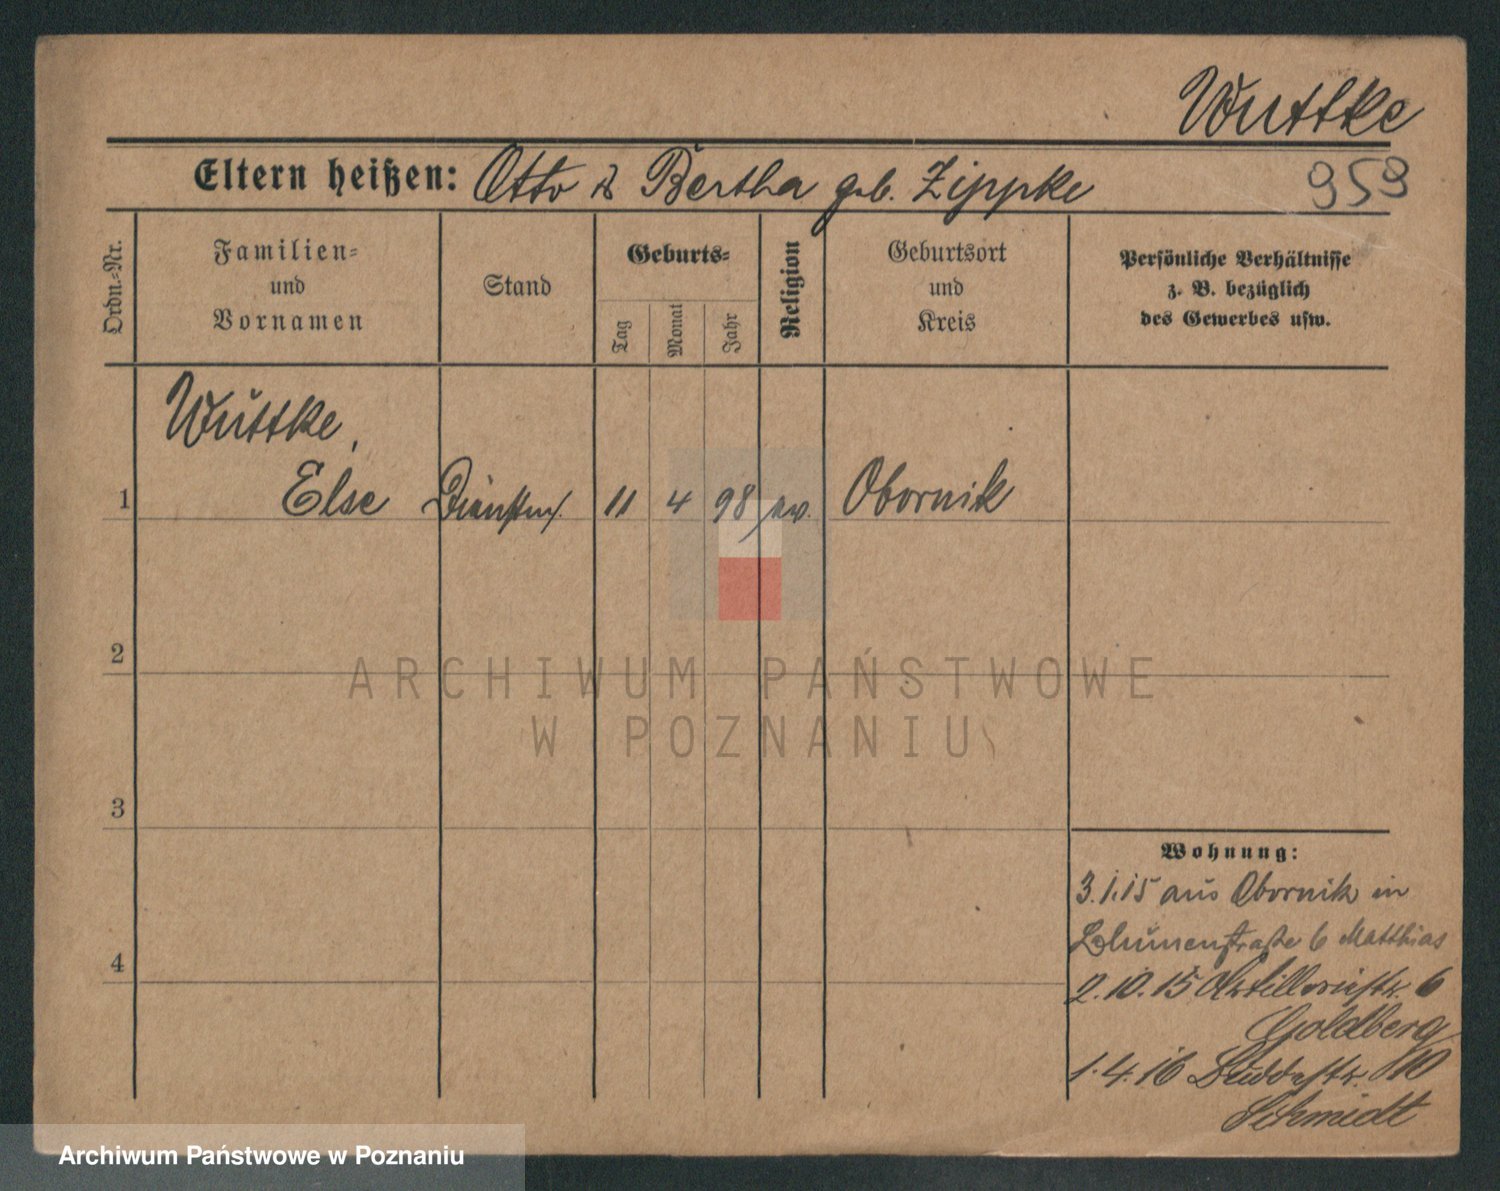 Wuttke
Eltern heißen: Otto & Bertha geb. Zippke
959
Ordn.=Nr.
Familien=
und
Vornamen
Stand
Geburts=
Tag
Monat
Jahr
Religion
Geburtsort
und
Kreis
Persönliche Verhältnisse
z. B. bezüglich
des Gewerbes usw.
Wuttke,
1 Else Dienstm. 11 4 98 ev. Obornik
2
ARCHIWUM PAŃSTWOWE
W POZNANIU
3
Wohnung:
3.1.15 aus Obornik in
Blumenstraße 6 Matthias
4
2.10.15 Artilleriestr. 6
Goldberg
1.4.16 Buddestr. 10
Schmidt
Archiwum Państwowe w Poznaniu